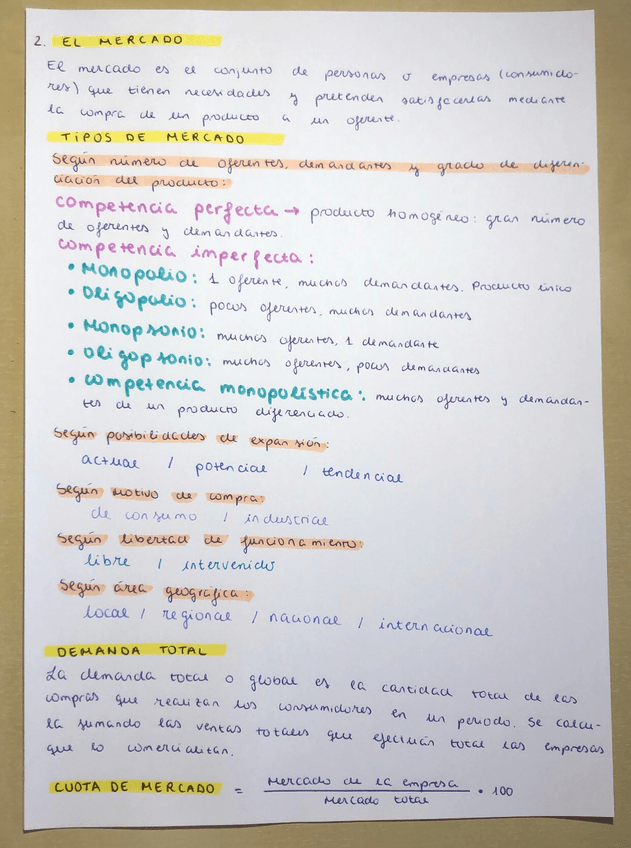 2. EL MERCADO
El mercado es el conjunto de personas o empresas (consumido-
res) que tienen necesidades y pretenden satisfacerlas mediante
la compra de un producto a un oferente.
TIPOS DE MERCADO
Según número de oferentes, demandantes y grado de diferen-
ciación del producto:
competencia perfecta → producto homogéneo: gran número
de oferentes y demandantes.
competencia imperfecta:
• Monopolio: 1 oferente, muchos demandantes. Producto único
• Oligopolio: pocos oferentes, muchos demandantes
• Monopsonio: muchos oferentes, 1 demandante
• Oligopsonio: muchos oferentes, pocos demandantes
• competencia monopolística: muchos oferentes y demandan-
tes de un producto diferenciado.
Según posibilidades de expansión:
actual / potencial / tendencial
Según motivo de compra:
de consumo / industrial
Según libertad de funcionamiento:
libre / intervenido
Según área geográfica:
local / regional / nacional / internacional
DEMANDA TOTAL
La demanda total o global es la cantidad total de las
compras que realizan los consumidores en un periodo. Se calcu-
la sumando las ventas totales que efectúan total las empresas
que lo comercializan.
CUOTA DE MERCADO = Mercado de la empresa / Mercado total • 100